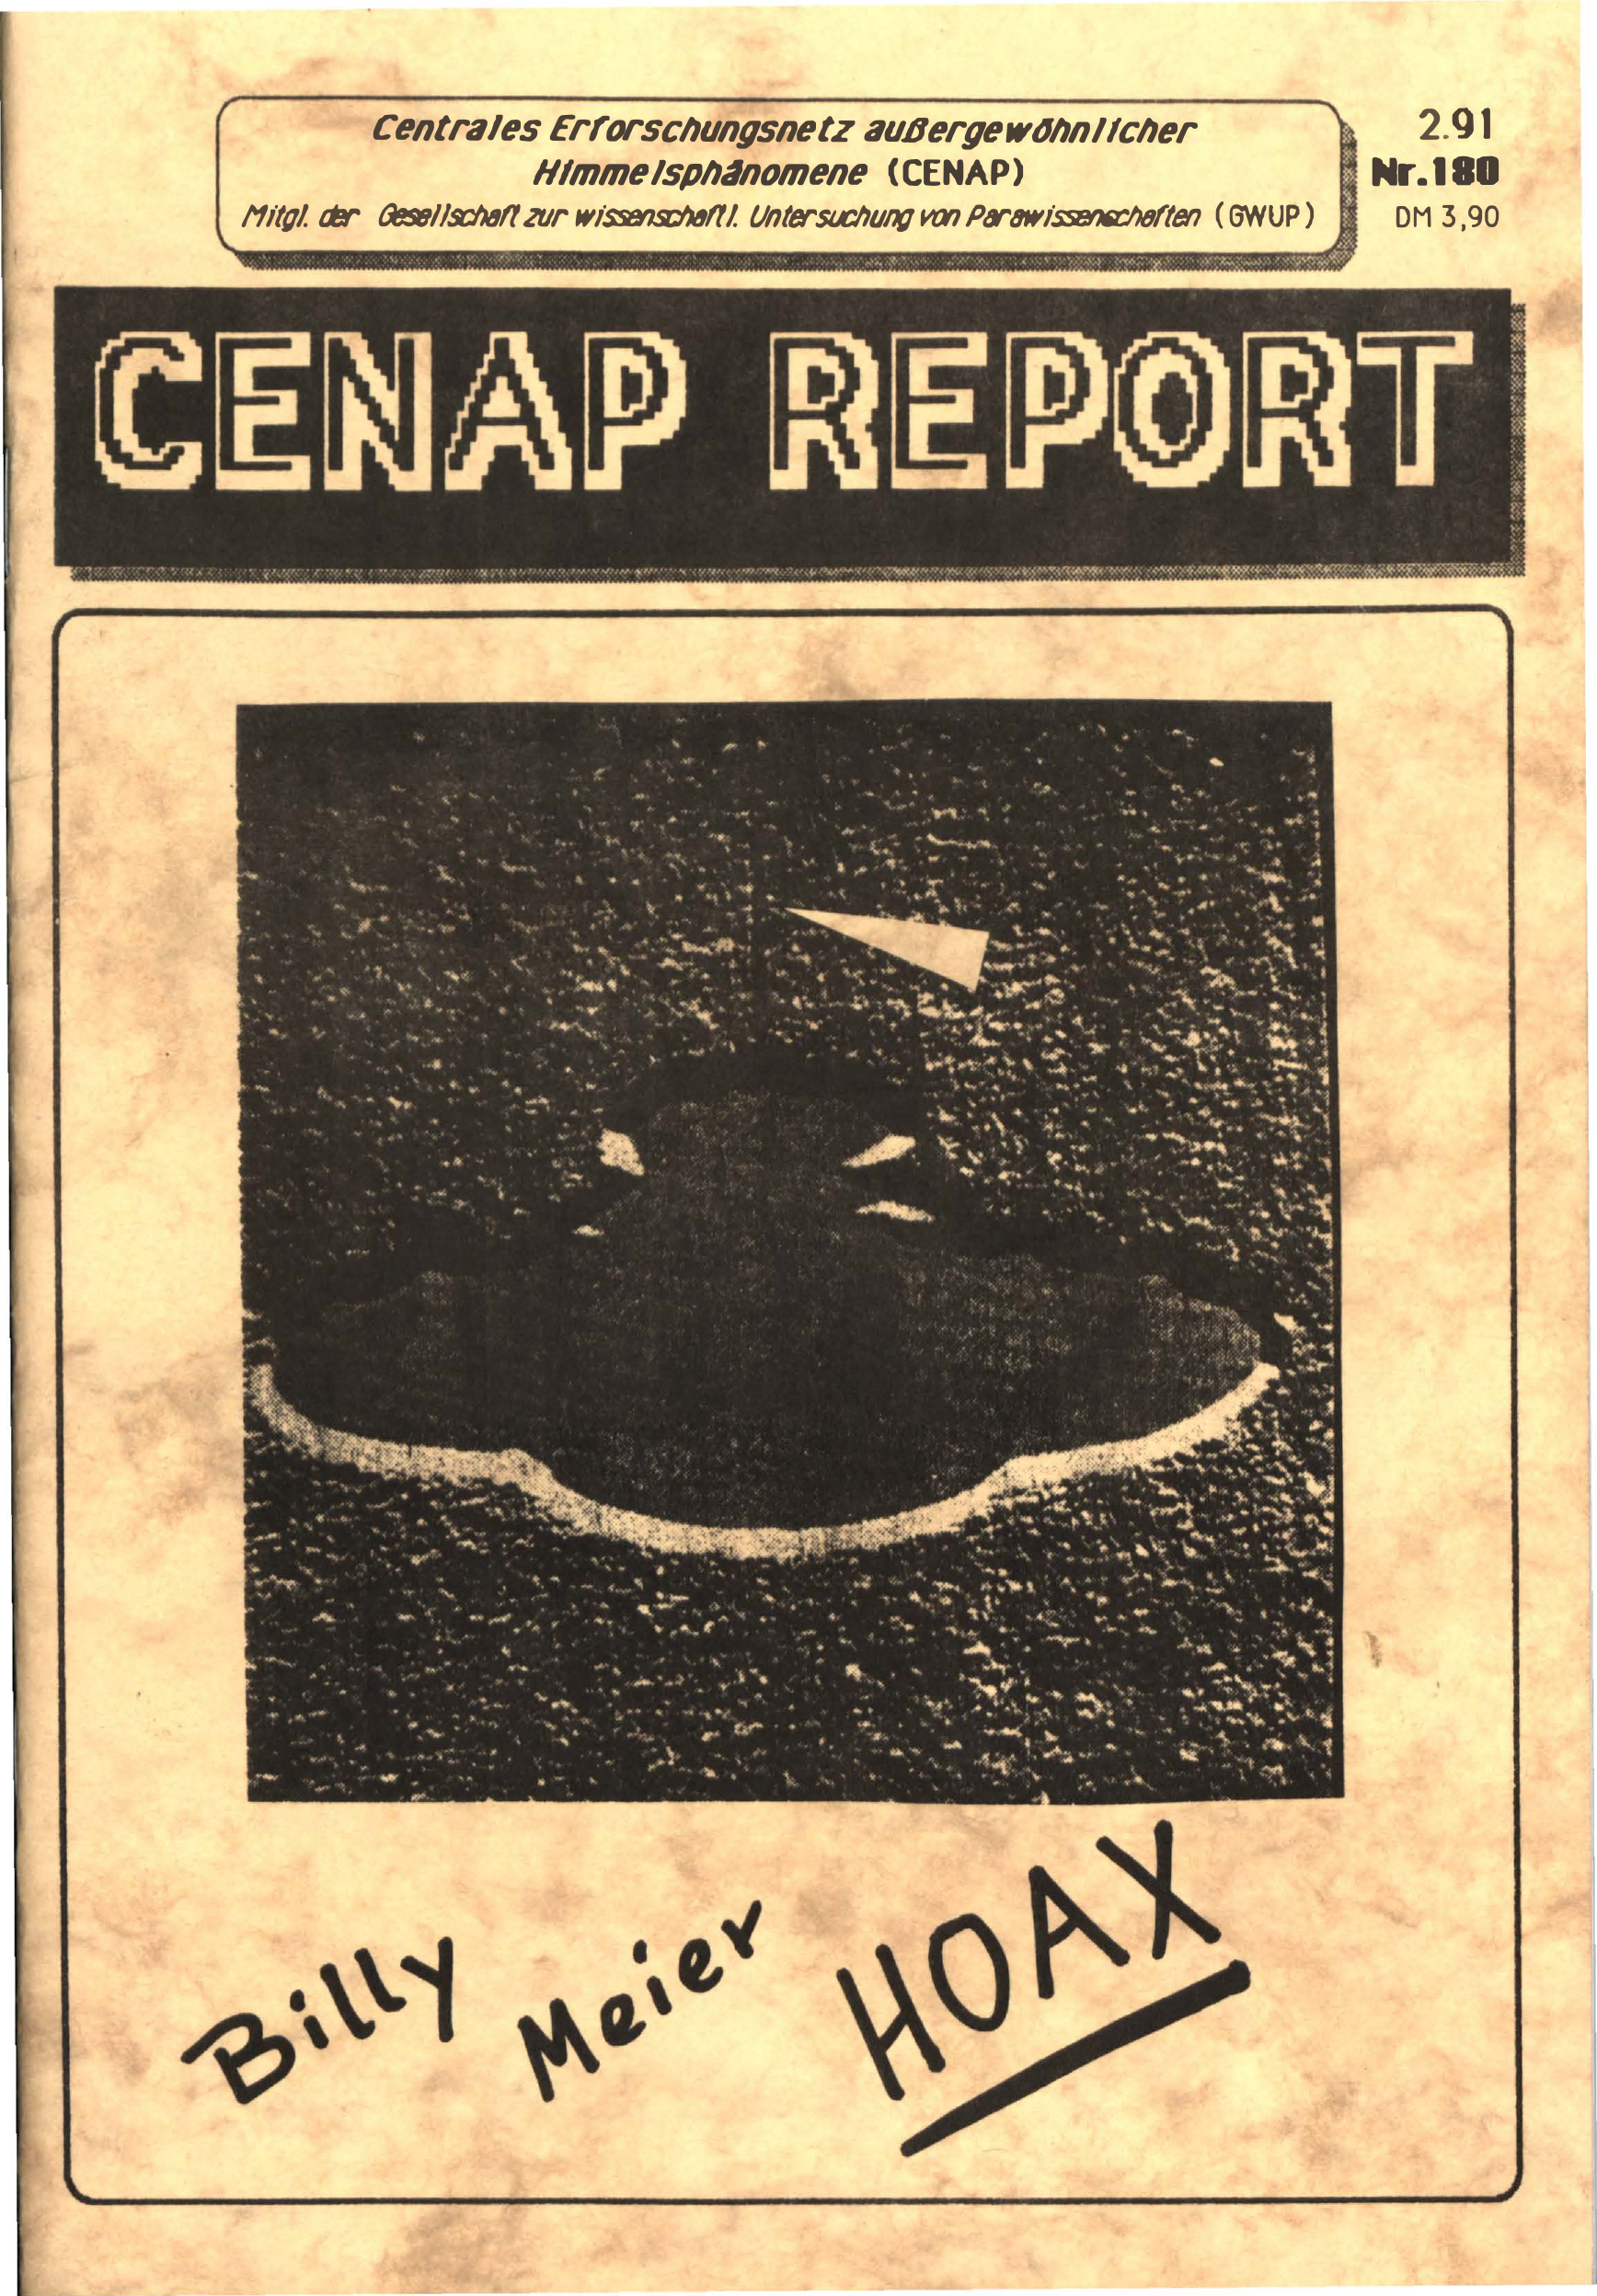 Centrales Erforschungsnetz außergewöhnlicher
Himmelsphänomene (CENAP)
Mitgl. der Gesellschaft zur wissenschaftl. Untersuchung von Parawissenschaften (GWUP)
2.91
Nr.180
DM 3,90
CENAP REPORT
Billy Meier HOAX